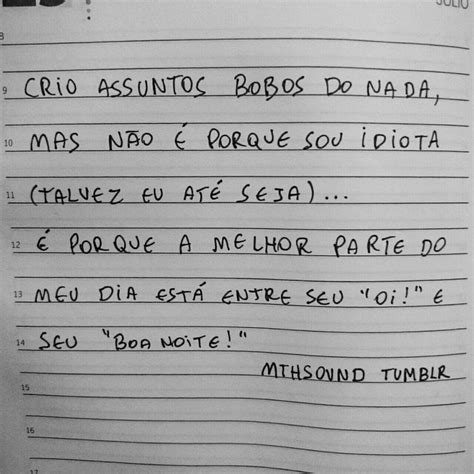 JULIO
8
9 CRIO ASSUNTOS BOBOS DO NADA,
10 MAS NÃO É PORQUE SOU IDIOTA
11 (TALVEZ EU ATÉ SEJA)...
12 É PORQUE A MELHOR PARTE DO
13 MEU DIA ESTÁ ENTRE SEU "OI!" E
14 SEU "BOA NOITE!"
MTHSOUND TUMBLR
15
16
17